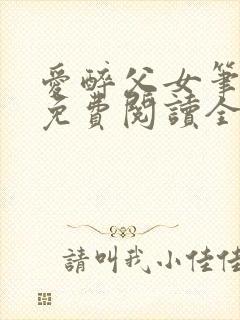 愛醉父女筆
免費閱讀全
請叫我小佳佳